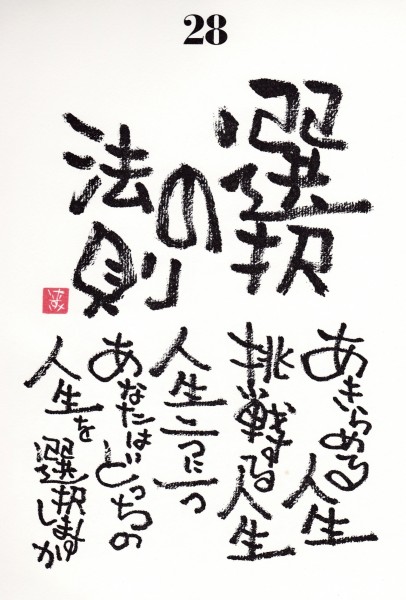 28
選択
の
法則
あきらめる人生
挑戦する人生
人生二つに一つ
あなたはどっちの
人生を選択しますか